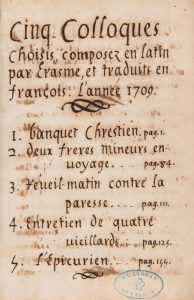 Cinq Colloques
Choisis, composez en latin
par Erasme, et traduits en
françois. L'année 1709.
1. banquet Chrestien. pag.1.
2. deux freres Mineurs en
voyage.... pag.84.
3. reueil-matin contre la
paresse.... pag.111.
4. Entretien de quatre
vieillards... pag.125.
5. l'Epicurien.... pag.155.